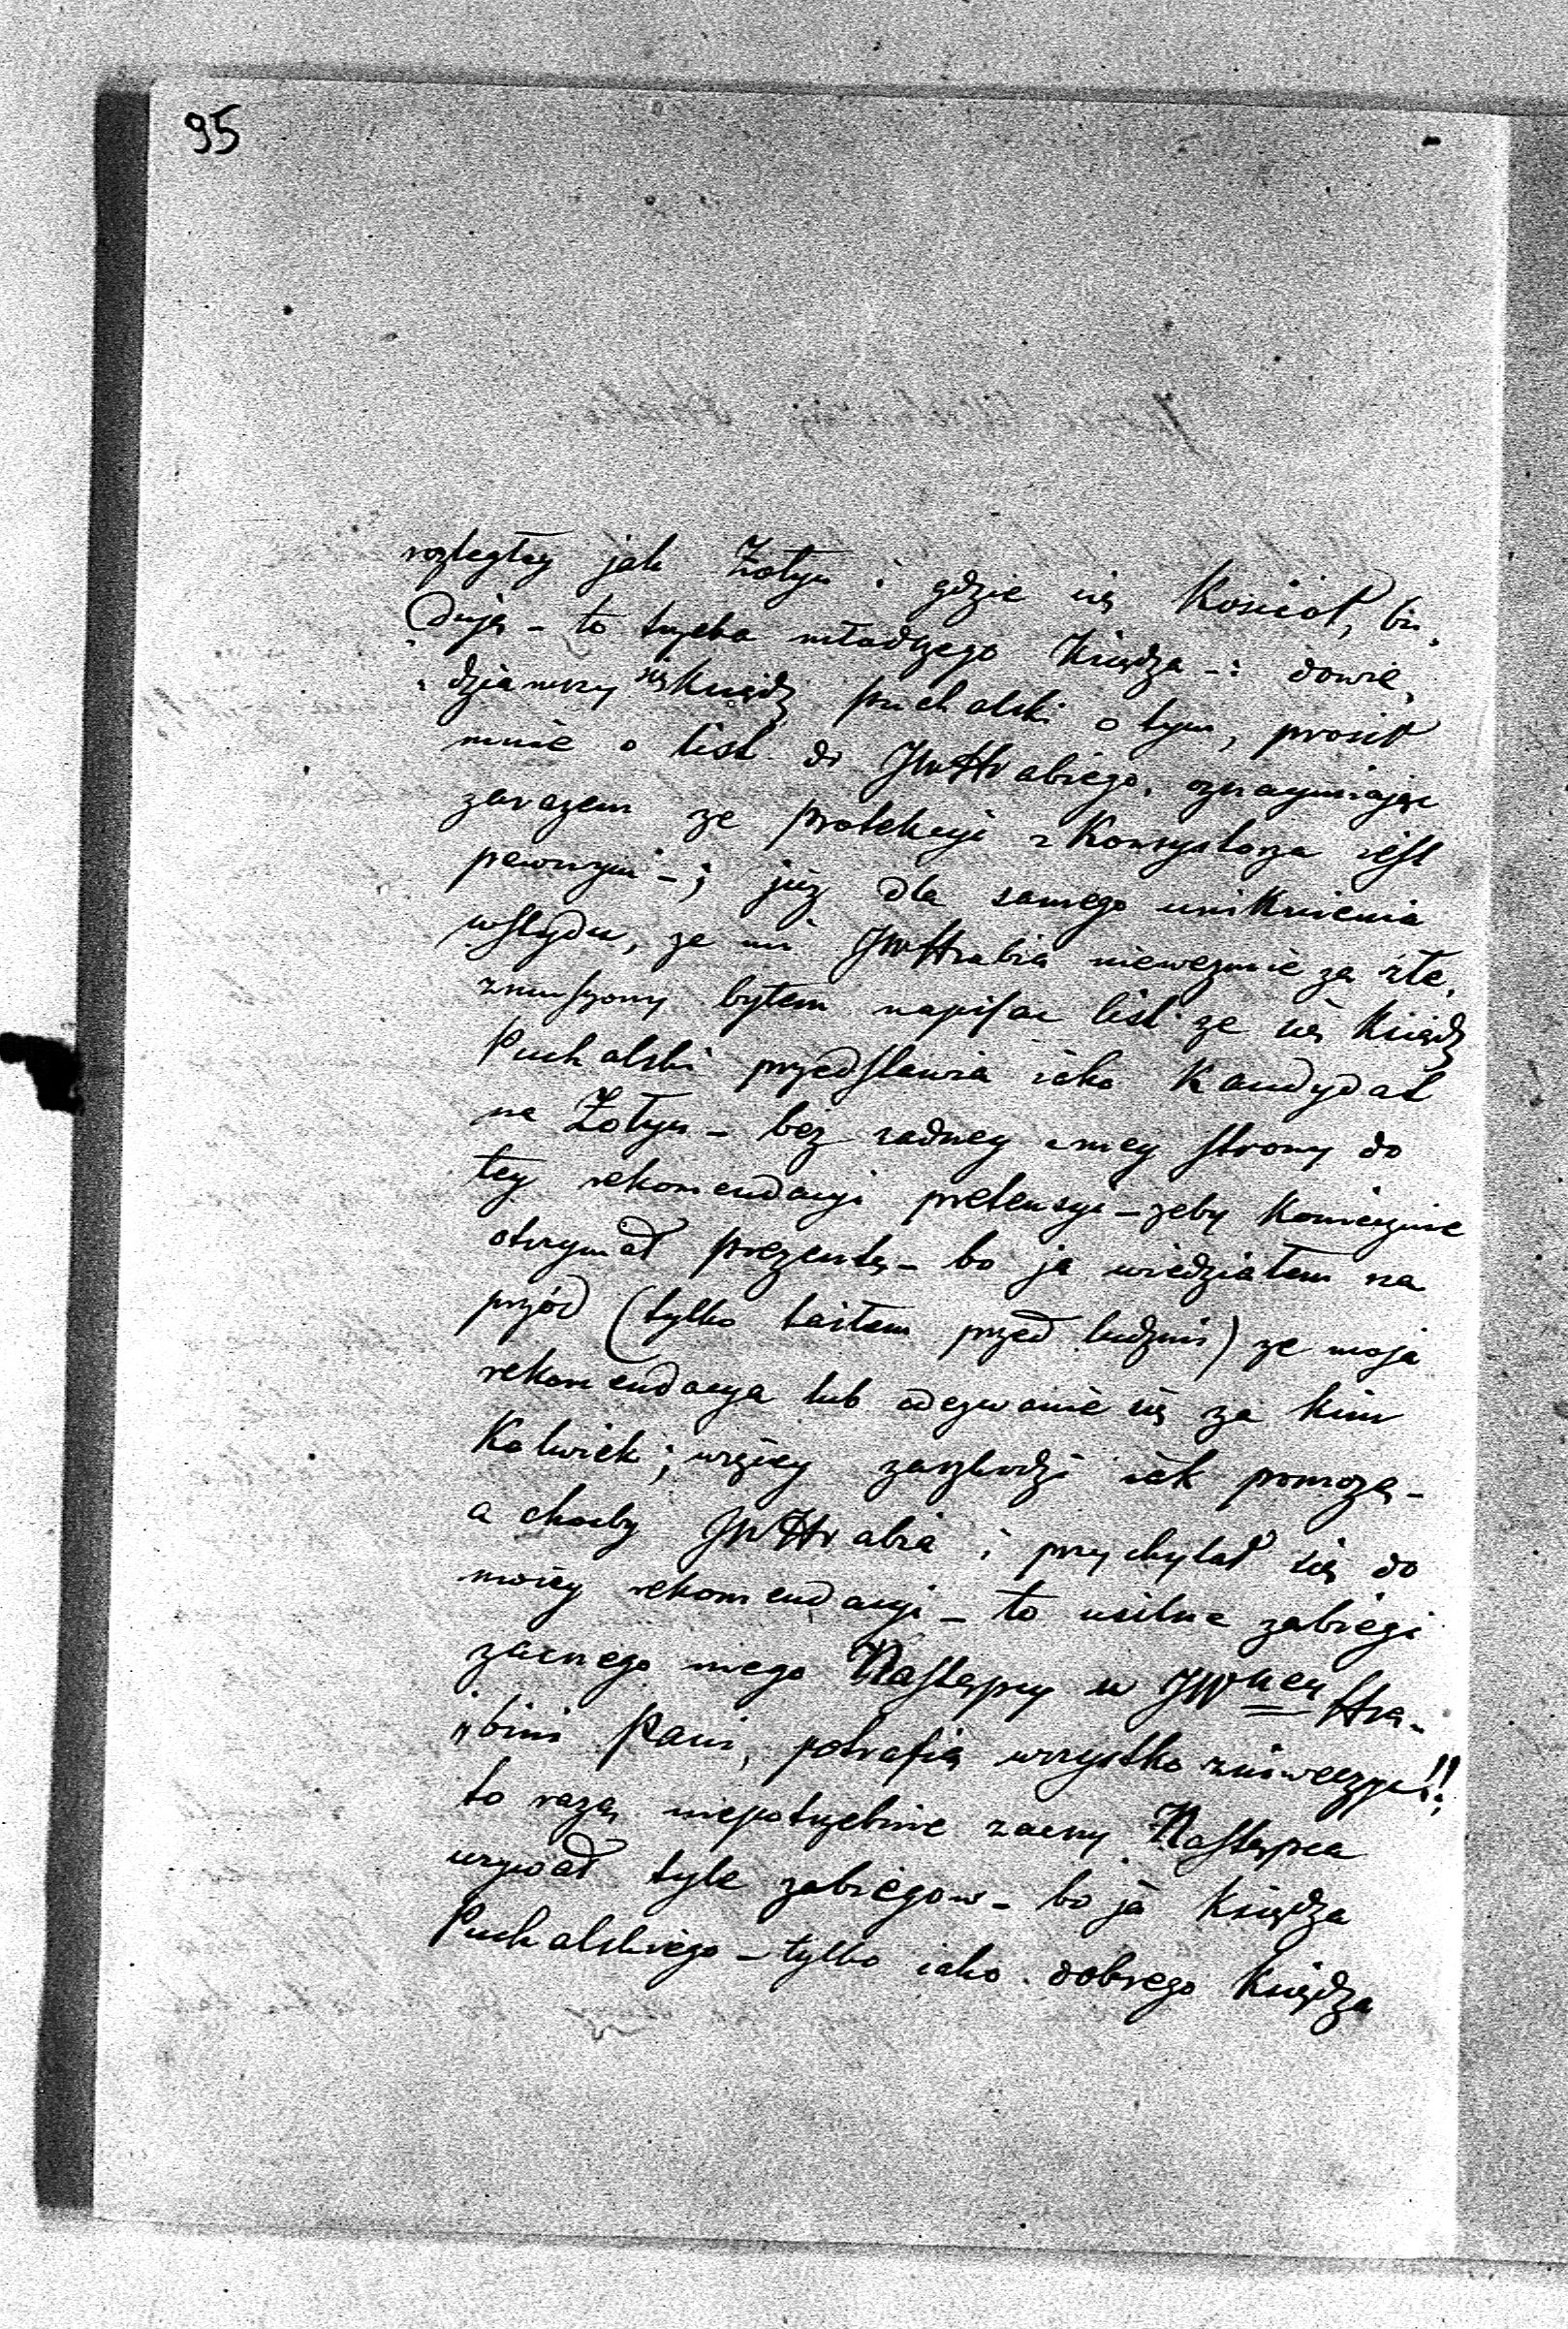 95
rozległey jak Żołyń i gdzie się Koscioł, bu„
„duje – to trzeba młodszego Xiędza –: dowie„
„dziawszy się Xiądz Puchalski o tym, prosił
mnie o list do JWHrabiego, oznaymiając
zarazem ze protekcyi z Konsystorza iest
pewnym –; już dla samego uniknienia
wstydu, ze mi JWHrabia niewezmie za złe,
zmuszony byłem napisac list ze się Xiądz
Puchalski przedstawia iako Kandydat
na Żołyń – bez zadney z mey strony do
tey rekomendacyi pretensyi – zeby koniecznie
otrzymał prezentę – bo ja wiedziałem na
przód (tylko taiłem przed ludzmi) ze moja
rekomendacya lub odezwanie się za kim
Kolwiek; więcey zaszkodzi iak pomoze –
a choćby JWHrabia i przychylał się do
moiey rekomendacyi – to usilne zabiegi
zacnego mego Następcy u JWney Hra„
„bini Pani, potrafią wszystko zniweczyc!!
to razą niepotrzebnie zacny Następca
uzywał tyle zabiegow – bo ja Xiędza
Puchalskiego – tylko iako dobrego Xiędza